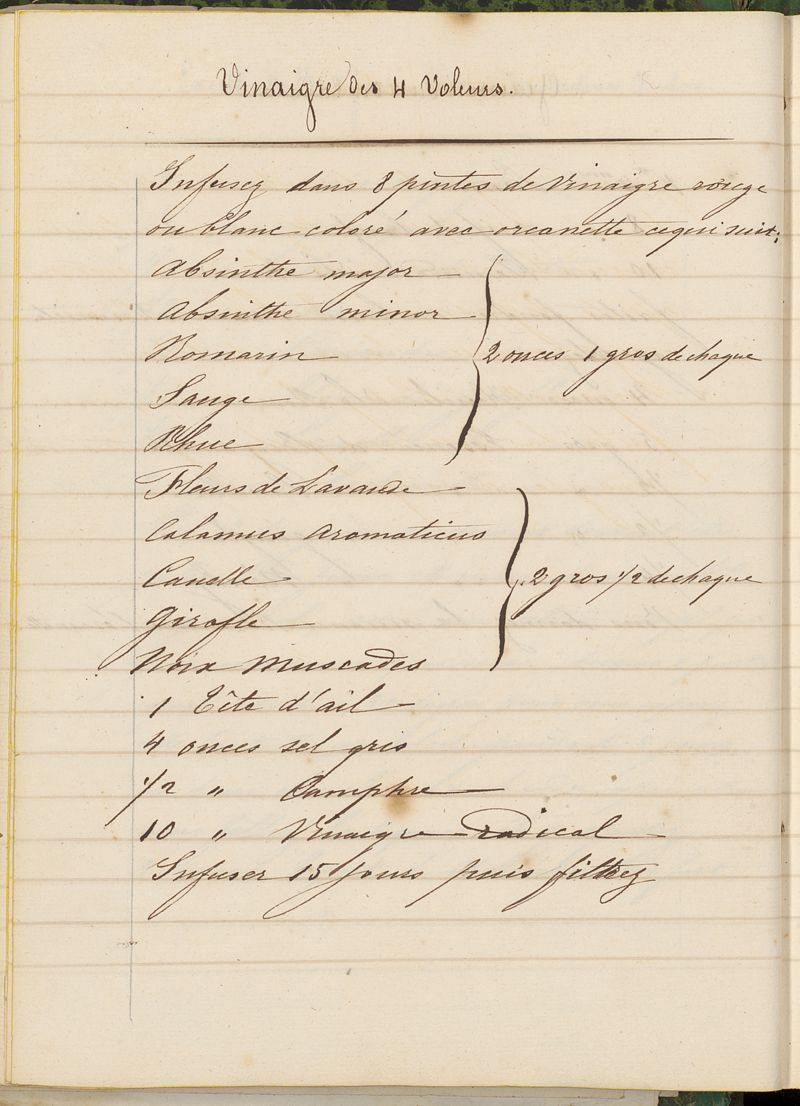 Vinaigre des 4 Voleurs.
Infusez dans 8 pintes de Vinaigre rouge
ou blanc coloré avec orcanette cequi suit:
Absinthe major
Absinthe minor
Romarin
2 onces 1 gros de chaque
Sauge
Rhue
Fleurs de Lavande
Calamus aromaticus
Canelle
2 gros 1/2 de chaque
Girofle
Noix Muscades
1 Tête d'ail
4 onces sel gris
1/2 " Camphre
10 " Vinaigre radical
Infuser 15 jours puis filtrez